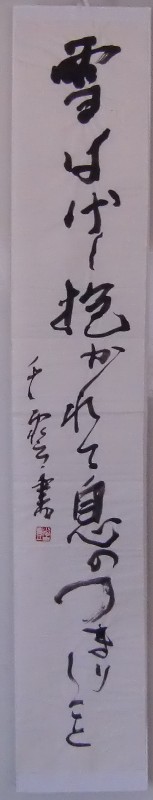 雪はげし抱かれて息のつまりしこと
千霞書